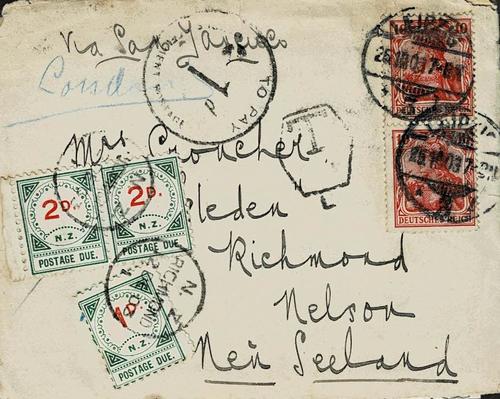 Via San Francisco
London
TO PAY
1
d
T
L
10 10
DEUTSCHES REICH
DEUTSCHES REICH
Mrs Croucher
Sleden
Richmond
Nelson
Neu Seeland
2D.
N.Z.
POSTAGE DUE.
2D.
N.Z.
POSTAGE DUE.
RICHMOND
N.Z.
1D.
N.Z.
POSTAGE DUE.